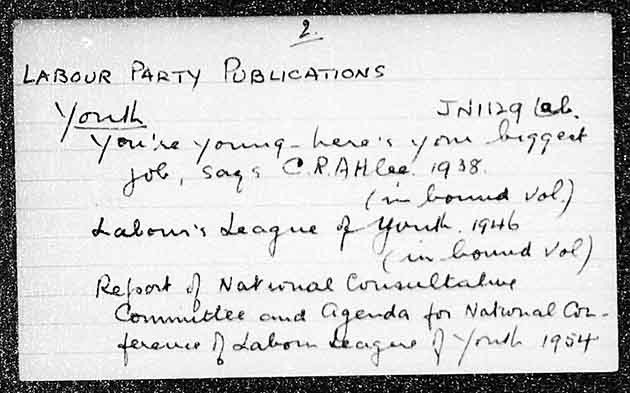 2.
LABOUR PARTY PUBLICATIONS
Youth JN1129 Lab.
You're young - here's your biggest
job, says C.R. Attlee. 1938.
(in bound vol.)
Labour's League of Youth. 1946
(in bound vol)
Report of National Consultative
Committee and Agenda for National Con-
ference of Labour League of Youth 1954